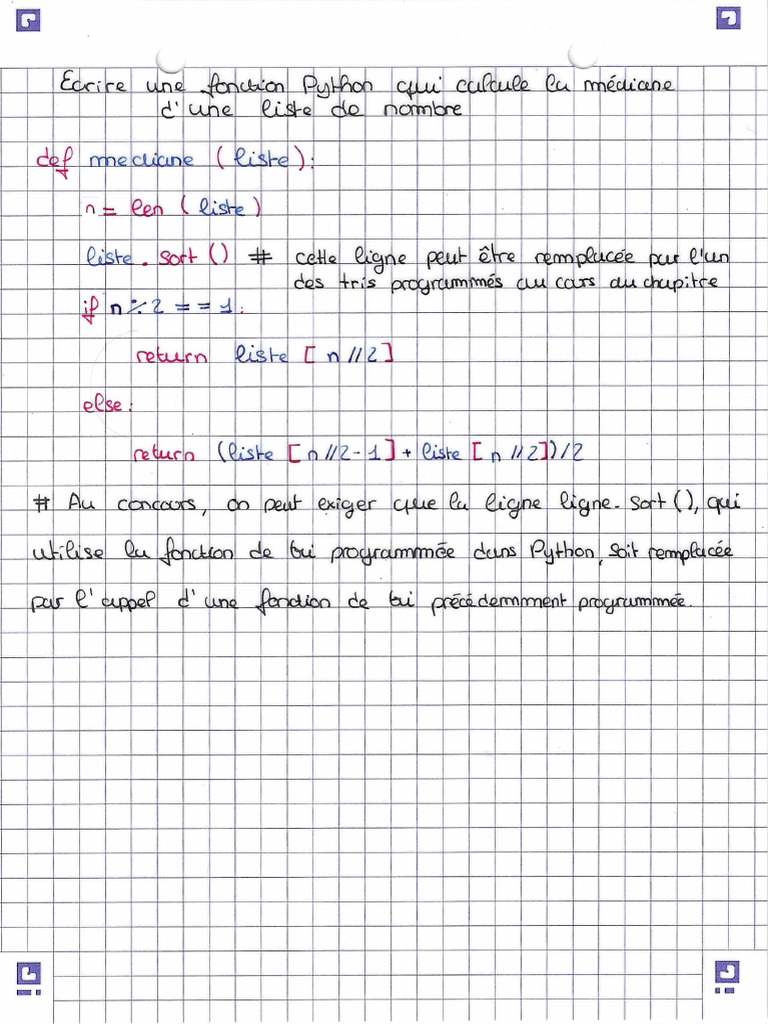 Ecrire une fonction Python qui calcule la médiane
d'une liste de nombre
def mediane (liste):
n = len (liste)
liste . sort () # cette ligne peut être remplacée par l'un
des tris programmés au cours du chapitre
if n % 2 == 1:
return liste [ n // 2 ]
else:
return (liste [ n // 2 - 1 ] + liste [ n // 2 ]) / 2
# Au concours, on peut exiger que la ligne ligne. sort (), qui
utilise la fonction de tri programmée dans Python, soit remplacée
par l'appel d'une fonction de tri précédemment programmée.